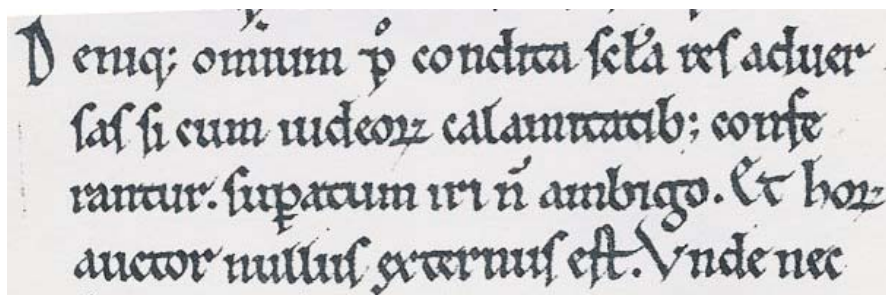 Deniq; omium p̊ condita scła res aduer
sas si cum iudeoꝝ calamitatib; confe
rantur. suꝑatum iri n̄ ambigo. Et hoꝝ
auctor nullus externus est. Vnde nec